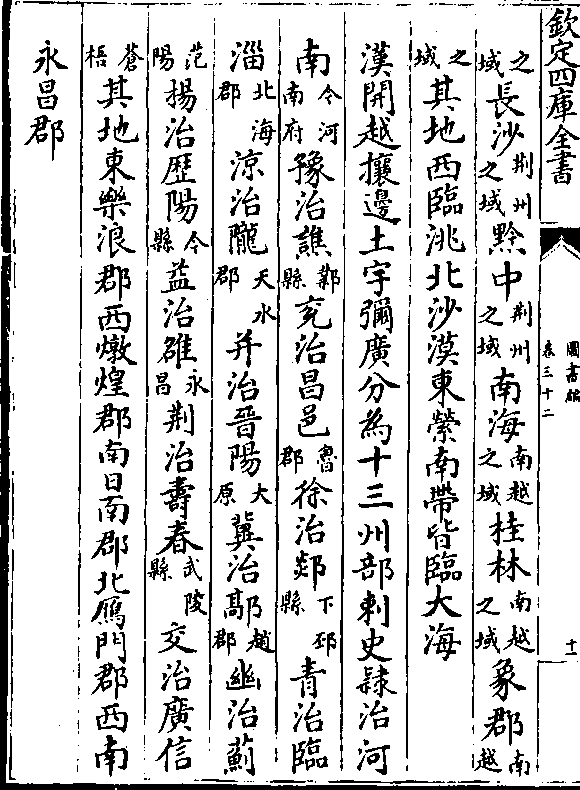 欽定四庫全書
圖書編
卷三十二
十一
之域長沙荆州之域黔中荆州之域南海南越之域桂林南越之域象郡南越
之域其地西臨洮北沙漠東縈南帶皆臨大海
漢開越攘邊土宇彌廣分為十三州部刺史隸治河
南今河南府豫治譙鄴縣兖治昌邑魯郡徐治郯下邳縣青治臨
淄北海郡涼治隴天水郡并治晉陽大原冀治鄗趙郡幽治薊
范陽揚治歷陽今縣益治雒永昌荆治壽春武陵縣交治廣信
蒼梧其地東樂浪郡西燉煌郡南日南郡北鴈門郡西南
永昌郡